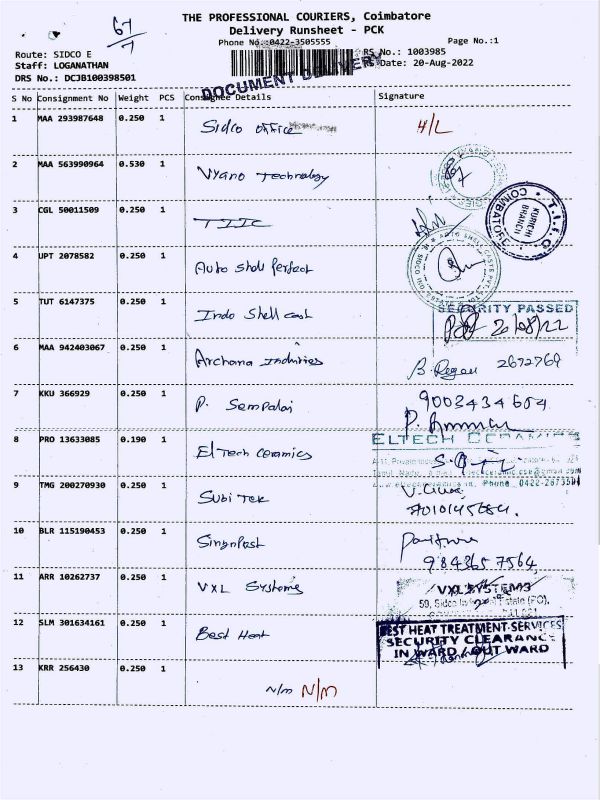 THE PROFESSIONAL COURIERS, Coimbatore
Delivery Runsheet - PCK
Phone No.:0422-3505555
Page No.:1
67/7
Route: SIDCO E
Staff: LOGANATHAN
DRS No.: DCJB100398501
RS No.: 1003985
Date: 20-Aug-2022
DOCUMENT DELIVERY
S No Consignment No Weight PCS Consignee Details Signature
1 MAA 293987648 0.250 1 Sidco office 4/L
2 MAA 563990964 0.530 1 Vyano Technology
3 CGL 50011509 0.250 1 TIIC
COIMBATORE T.I.I.C. KURICHI BRANCH
4 UPT 2078582 0.250 1 Auto shell perfect
5 TUT 6147375 0.250 1 Indo Shell cast
SECURITY PASSED
20/08/22
6 MAA 942403067 0.250 1 Archana Industries 2672769
7 KKU 366929 0.250 1 P. Sempalai 9003434604
8 PRO 13633085 0.190 1 El Tech Ceramics
ELTECH CERAMICS
Phone 0422-267350
9 TMG 200270930 0.250 1 Subi Tek
10 BLR 115190453 0.250 1 Singnplast
9843657564
11 ARR 10262737 0.250 1 VXL Systems
VXL SYSTEMS
50, Sidco Industrial Estate (PO),
12 SLM 301634161 0.250 1 Best Heat
BEST HEAT TREATMENT SERVICES
SECURITY CLEARANCE
IN WARD / OUT WARD
13 KRR 256430 0.250 1 N/m N/m